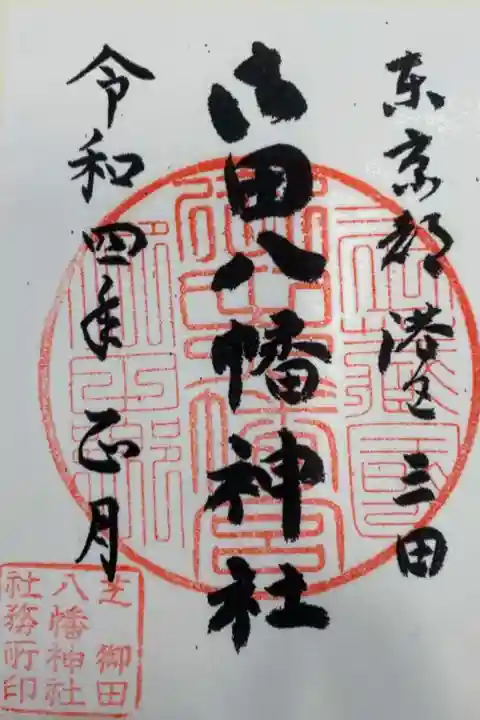 東京都港区三田
御田八幡神社
令和四年正月
芝御田
八幡神社
社務所印